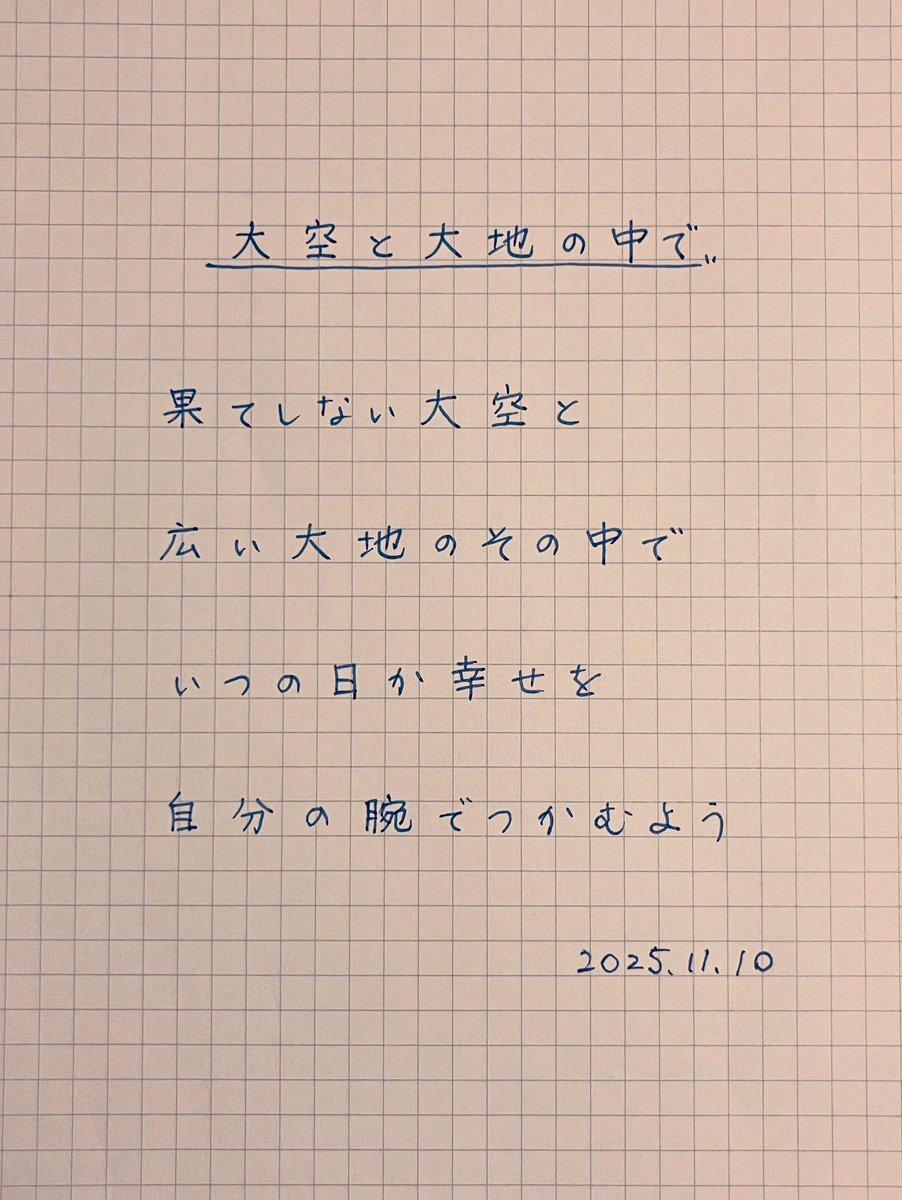 大空と大地の中で〃
果てしない大空と
広い大地のその中で
いつの日か幸せを
自分の腕でつかむよう
2025.11.10